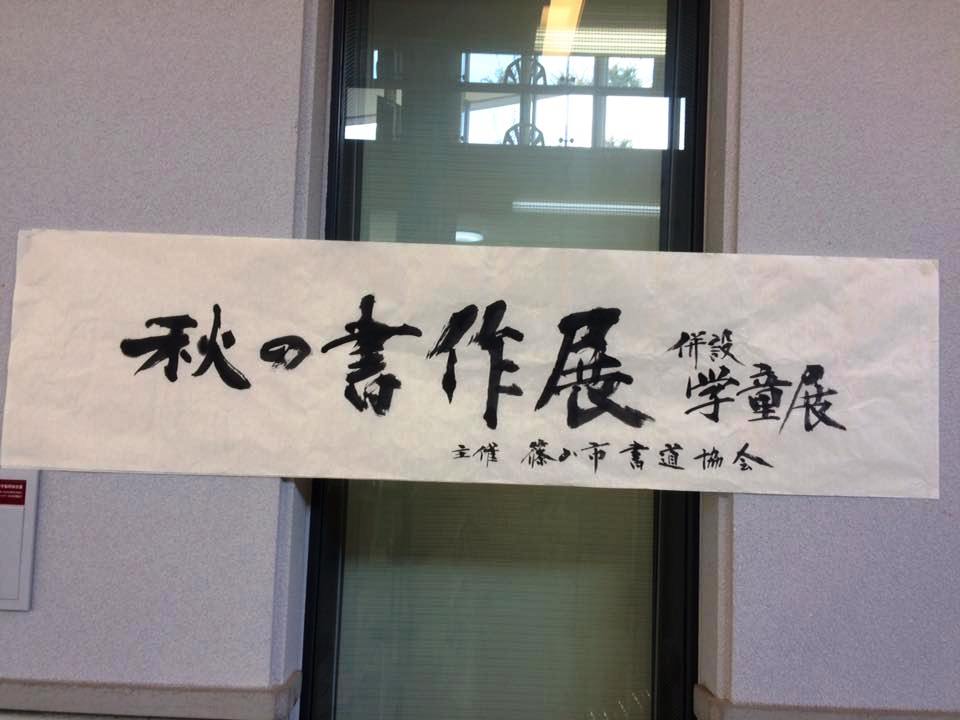 秋の書作展
併設
学童展
主催 篠山市書道協会